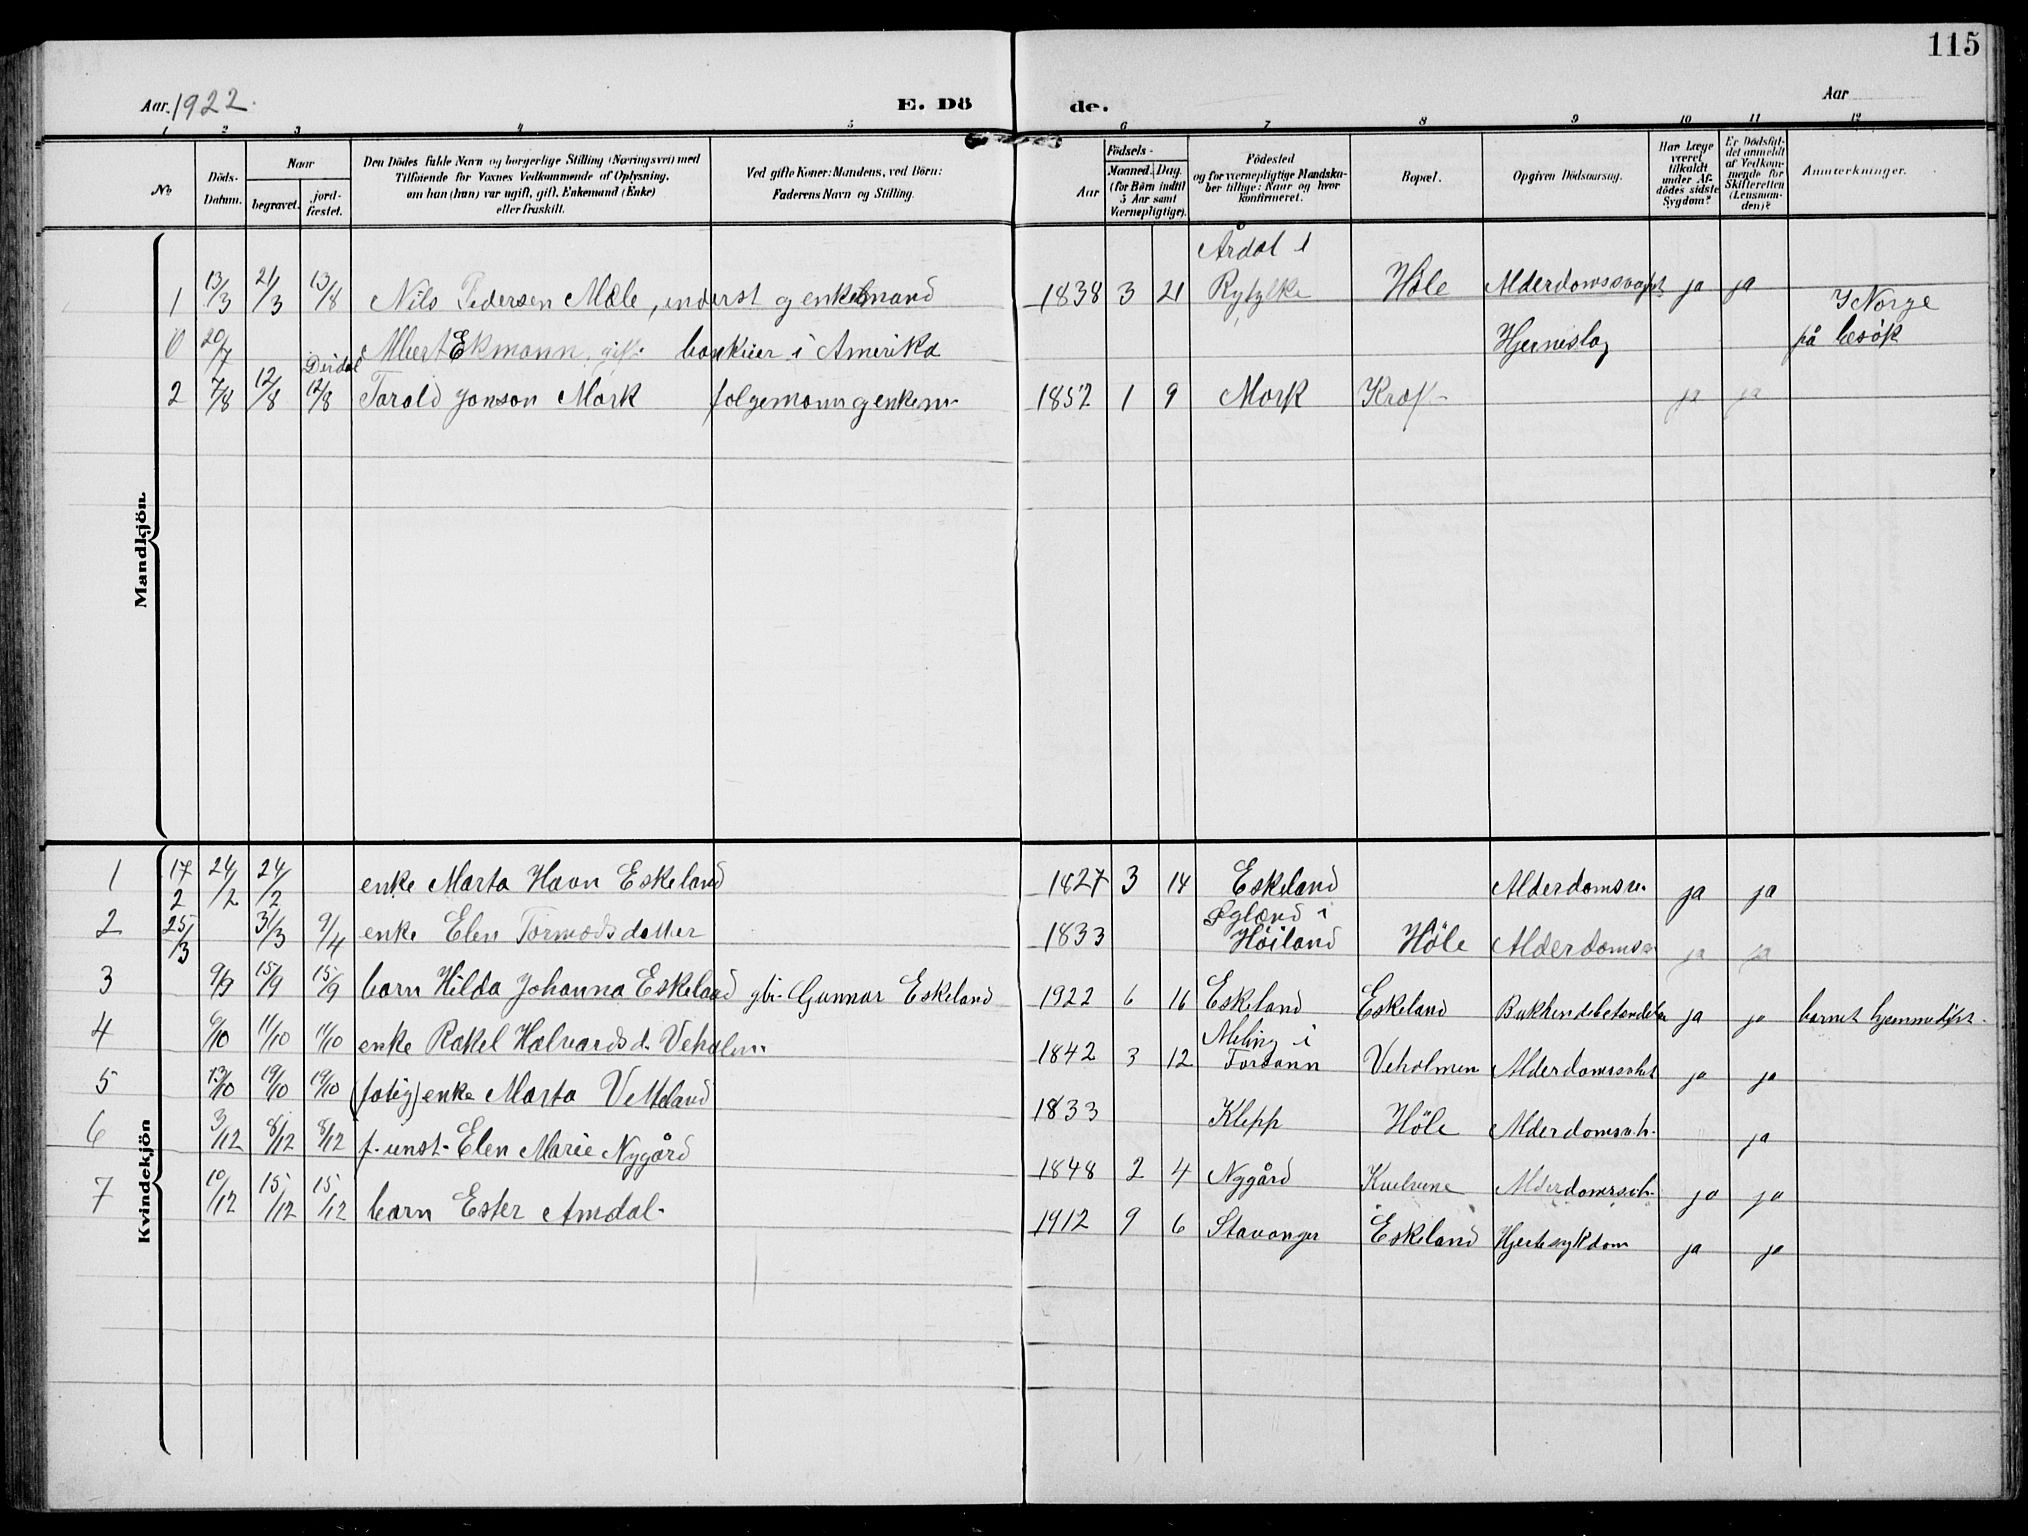 115
Aar. 1922.
E. Dö de.
Aar
1 2 3 4 5 6 7 8 9 10 11 12
No
Döds-Datum.
Naar
begravet.
jord-fæstet.
Den Dödes fulde Navn og borgerlige Stilling (Næringsvei) med
Tilföiende for Voxnes Vedkommende af Oplysning,
om han (hun) var ugift, gift, Enkemand (Enke)
eller fraskilt.
Ved gifte Koner: Mandens, ved Börn:
Faderens Navn og Stilling.
Födsels-
Aar
Maaned. Dag.
(for Börn indtil
5 Aar samt
Værnepligtige).
Födested
og for værnepligtige Mandska-
ber tillige: Naar og hvor
konfirmeret.
Bopæl.
Opgiven Dödsaarsag.
Har Læge
været
tilkaldt
under Af-
dödes sidste
Sygdom?
Er Dödsfal-
det anmeldt
af Vedkom-
mende for
Skifteretten
(Lensman-
den)?
Anmerkninger.
Mandkjön.
1 13/3 21/3 13/8 Nils Pedersen Mæle, inderst og enkemand 1838 3 21 Årdal i Ryfylke Høle Alderdomssvagh. ja ja
0 20/7 Albert Ekmann, gift bankier i Amerika Hjerneslag I Norge på besøk
Dirdal
2 7/8 12/8 12/8 Torald Jonson Mork folgemann og enkem. 1852 1 9 Mork ja ja
Kvindekjön
1 17/2 24/2 24/2 enke Marta Havn Eskeland 1827 3 14 Eskeland ja ja
2 25/3 31/3 9/4 enke Elen Tormodsdatter 1833 Øgland i Høiland Høle ja ja
3 9/9 15/9 15/9 barn Hilda Johanna Eskeland gbr. Gunnar Eskeland 1922 6 16 Eskeland Eskeland ja ja barnet hjemmedøbt.
4 6/10 11/10 11/10 enke Rakel Halvardsd. Veholmen 1842 3 12 Meling i Forsann Veholmen ja ja
5 13/10 19/10 19/10 (fatig) enke Marta Vetteland 1833 Klepp Høle Alderdomssvh. ja
6 3/12 8/12 8/12 f. unst. Elen Marie Nygård 1848 2 4 Nygård ja ja
7 10/12 15/12 15/12 barn Ester Amdal. 1912 9 6 Stavanger Eskeland Hjertesykdom ja ja